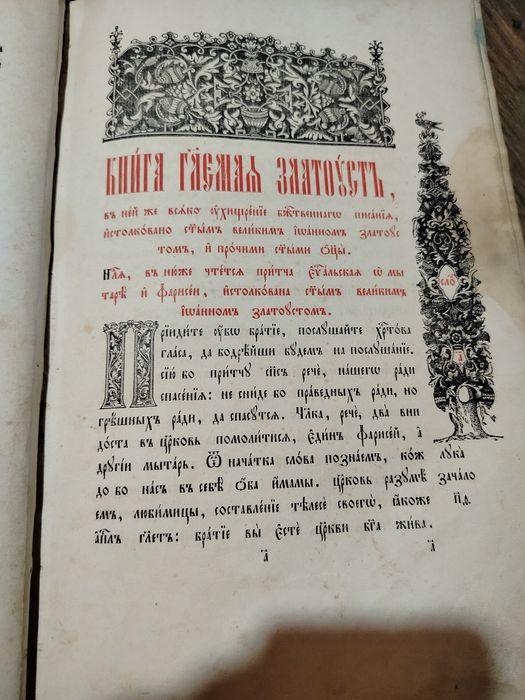 КНИ́ГА ГЛЕ́МАЯ ЗЛАТОꙊ́СТЪ,
въ не́й же всѧ́ко ᲂу҆хищре́нїе бж҃е́ственнагѡ писа́нїѧ,
и҆столко́вано ст҃ы́мъ вели́кимъ і҆ѡа́нномъ златоꙋ́с
томъ, и҆ про́чими ст҃ы́ми ѻ҆ц҃ы̀.
Нл҃ѧ, въ ню́же чте́тсѧ при́тча є҆ѵⷢ҇альскаѧ ѡ҆ мы
тарѣ̀ и҆ фарисе́и, и҆столко́вана ст҃ы́мъ вели́кимъ
і҆ѡа́нномъ златоꙋ́стомъ.
Прїиди́те ᲂу҆́бѡ бра́тїе, послꙋ́шайте хрⷭ҇то́ва
гла́са, да бодрѣ́йши бꙋ́демъ на послꙋша́нїе.
сїю́ бо при́тчꙋ сп҃съ речѐ, на́шегѡ ра́ди
спасе́нїѧ: не сни́де бо пра́ведныхъ ра́ди, но
грѣ́шныхъ ра́ди, да спасꙋ́тсѧ. Чл҃ка, речѐ, два̀ вни
до́ста въ цр҃ковь помоли́тисѧ, є҆ди́нъ фарисе́й, а҆
дрꙋгі́и мыта́рь. Ѿ нача́тка сло́ва позна́емъ, ко́ж лꙋка̀
до бо на́съ въ себѣ̀ ѻ҆́ба и҆́мамы. цр҃ковь разꙋмѣ̀ зача́ло
емъ, люби́мицы, составле́нїе тѣлесѐ своегѡ̀, ꙗ҆́коже п҃ѳ.
а҆пⷭ҇лъ гл҃етъ: бра́тїе вы̀ є҆стѐ цр҃кви бг҃а жи́ва.
сло́
а҃
а҃ а҃